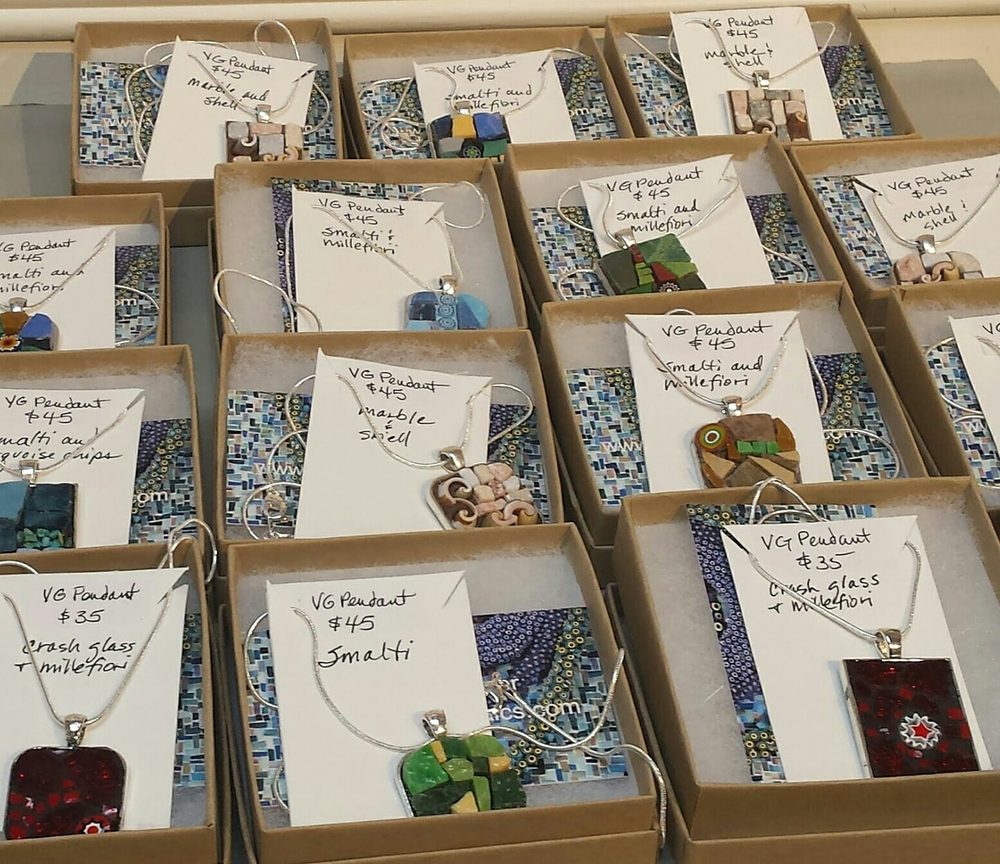 VG Pendant
$45
Marble and
Shell
VG Pendant
$45
Smalti and
millefiori
VG Pendant
$45
marble &
shell
.com
VG Pendant
$45
Smalti &
millefiori
VG Pendant
$45
Smalti and
millefiori
VG Pendant
$45
Marble &
shell
VG Pendant
$45
malti and
millefiori
om
VG Pendant
$45
malti and
rquoise chips
.com
VG Pendant
$45
marble
&
shell
www
VG Pendant
$45
Smalti and
millefiori
www
VG
VG Pendant
$35
Crash glass
+ millefiori
VG Pendant
$45
Smalti
ics.com
VG Pendant
$35
Crash glass
+ millefiori